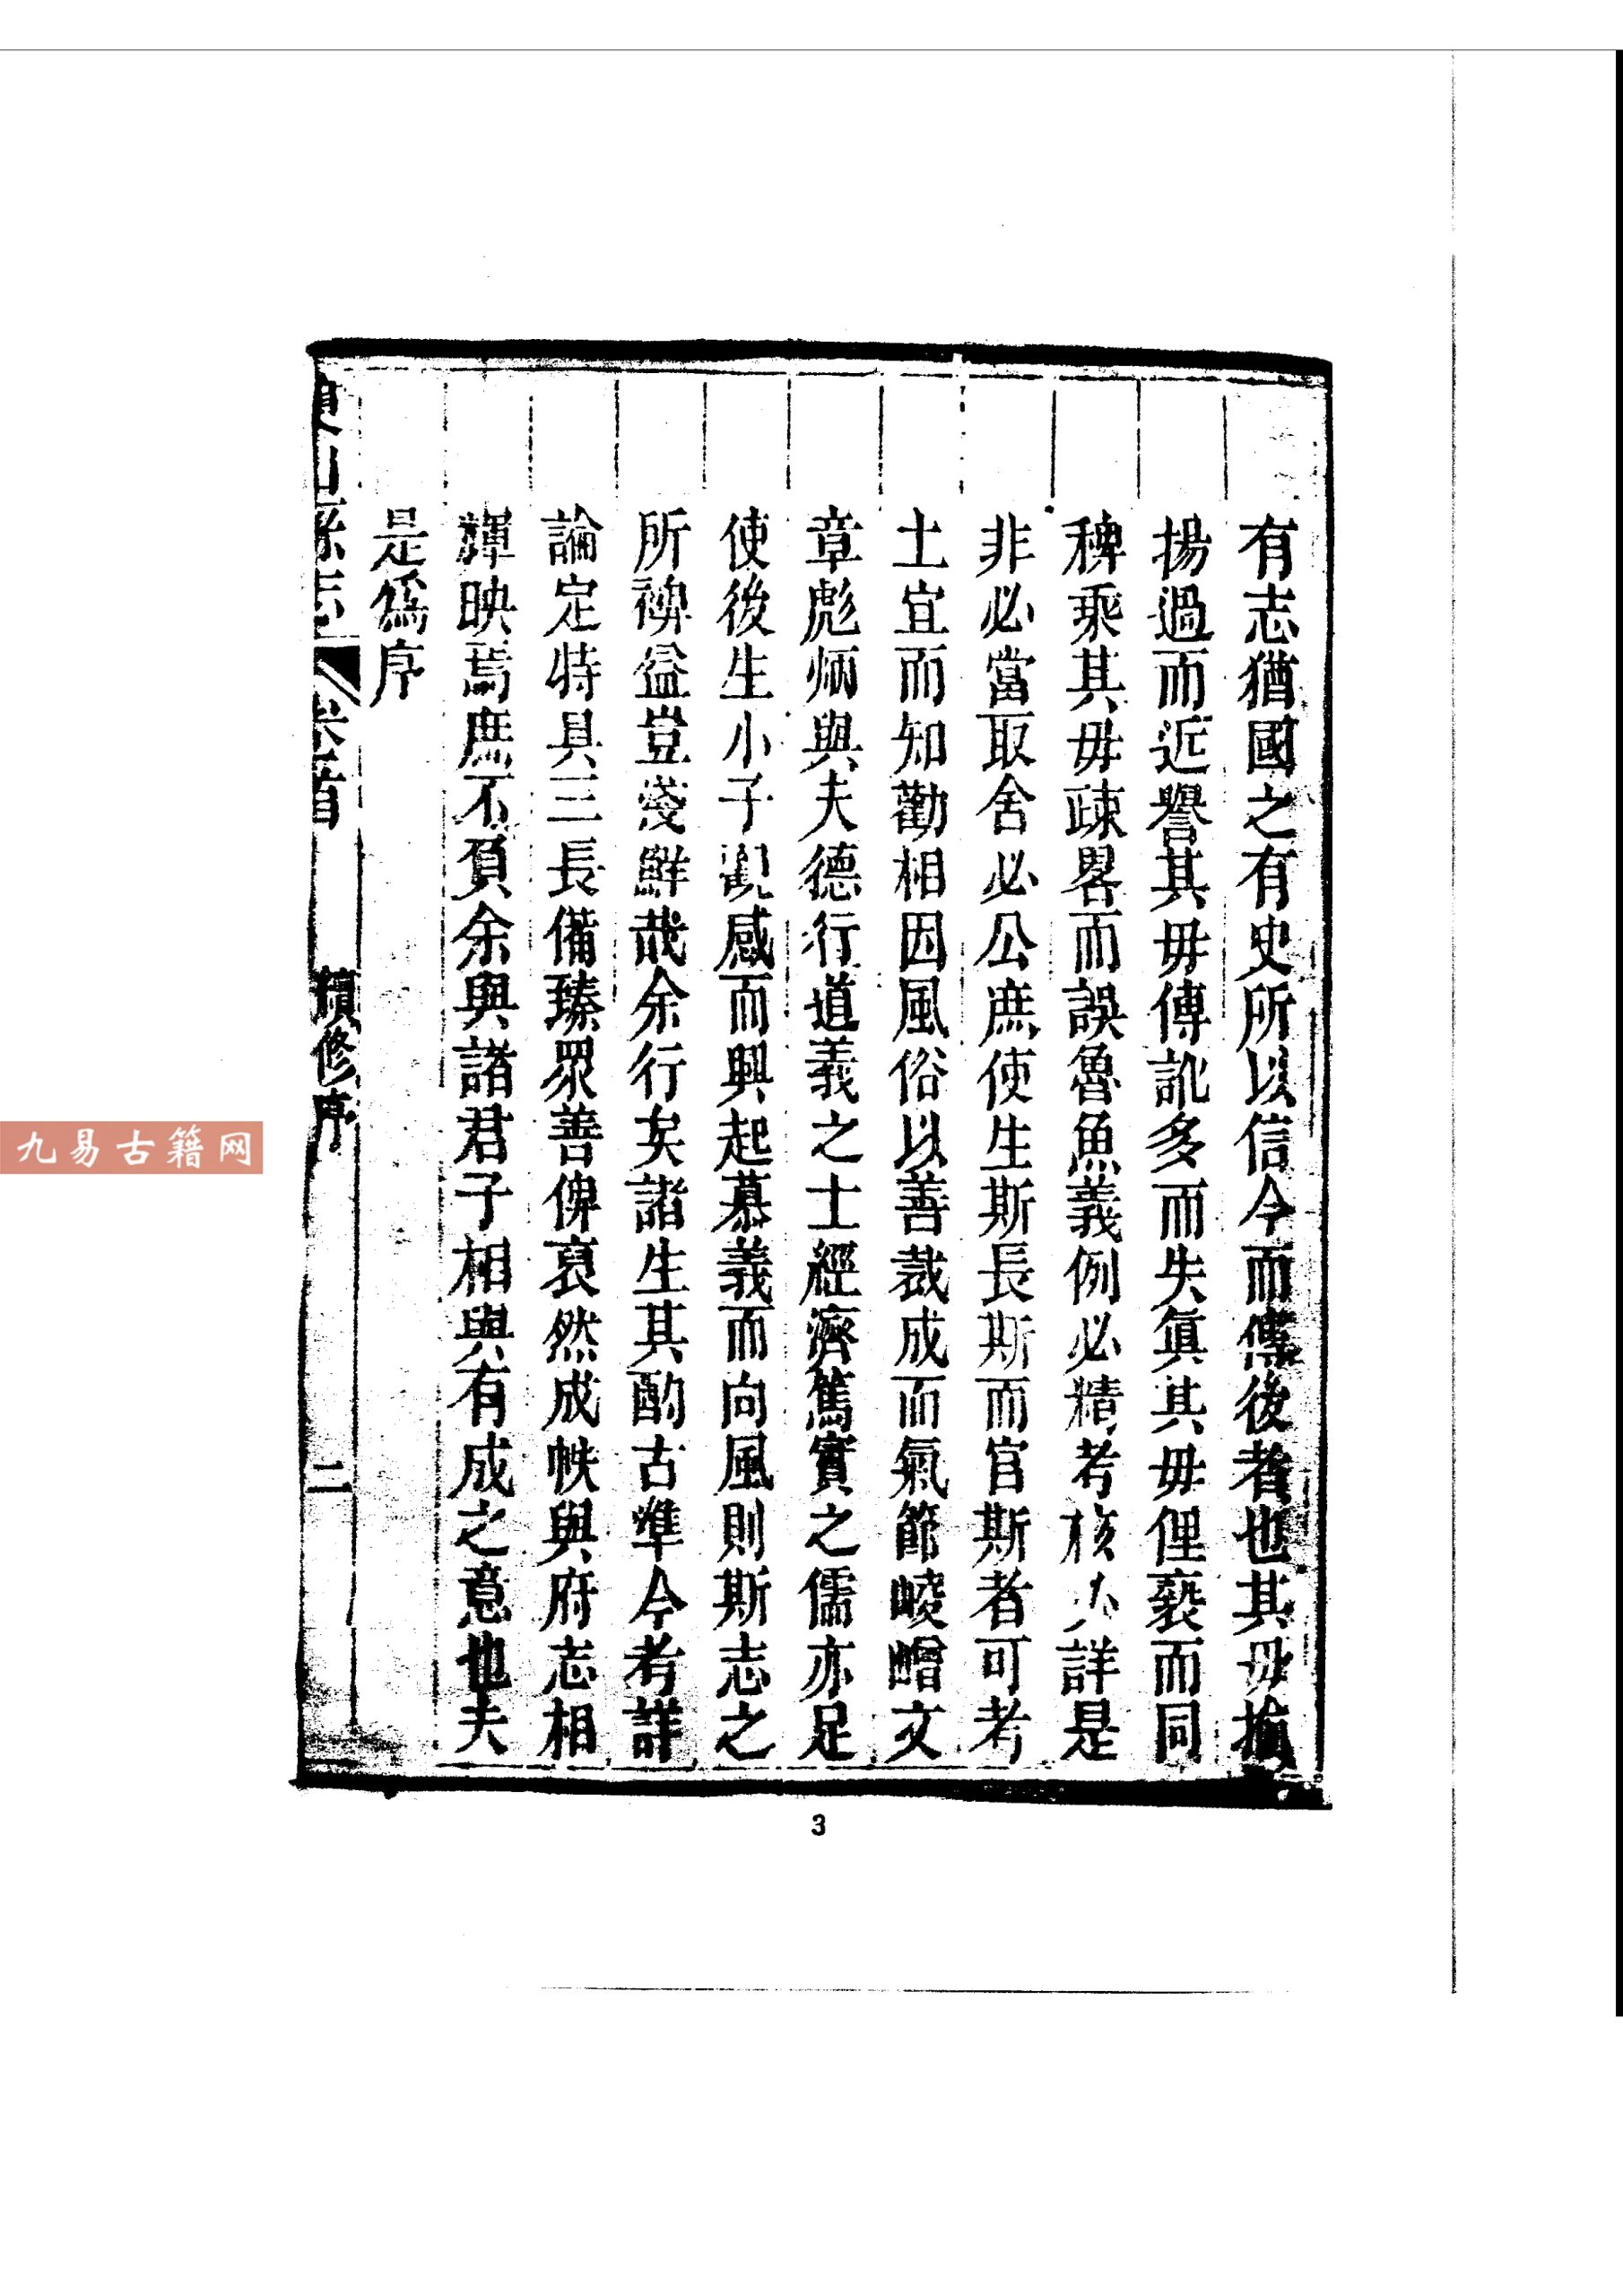 有志猶國之有史所以信今而傳後者也其毋揄
揚過而近譽其毋傳訛多而失眞其毋俚褻而同
稗乘其毋疎畧而誤魯魚義例必精考核必詳是
非必當取舍必公庶使生斯長斯而官斯者可考
土宜而知勸相因風俗以善裁成而氣節崚嶒文
章彪炳與夫德行道義之士經濟篤實之儒亦足
使後生小子觀感而興起慕義而向風則斯志之
所裨益豈淺鮮哉余行矣諸生其酌古準今考詳
論定特具三長備臻眾善俾裒然成帙與府志相
輝映焉庶不負余與諸君子相與有成之意也夫
是爲序
山縣志 卷首 續修序 二
3
九易古籍网